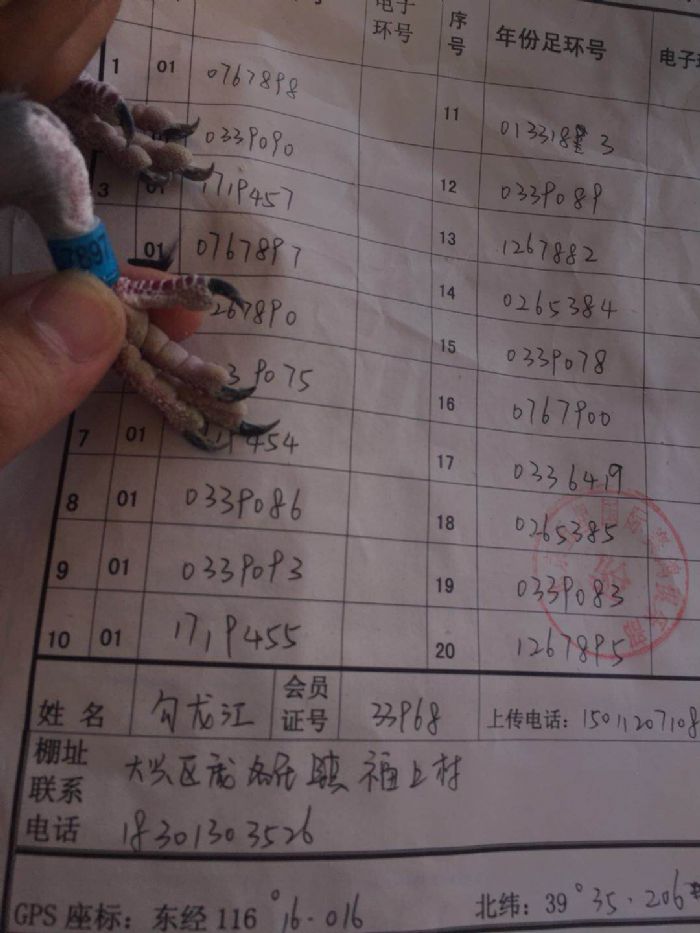 环号 序号 年份足环号 电子环
1 01 0767898
0339090 11 0133188 3
3 1719457 12 0339089
01 0767897 13 1267882
7897
267890 14 0265384
39075 15 0339078
7 01 454 16 0767900
8 01 0339086 17 0336419
9 01 0339093 18 0265385
10 01 1719455 19 0339083
20 1267895
姓 名 勾龙江 会员证号 33968 上传电话：15011207108
棚址联系电话 大兴区庞各庄镇 福上村
18301303526
GPS 座标：东经 116 °16.016 北纬：39 °35.206